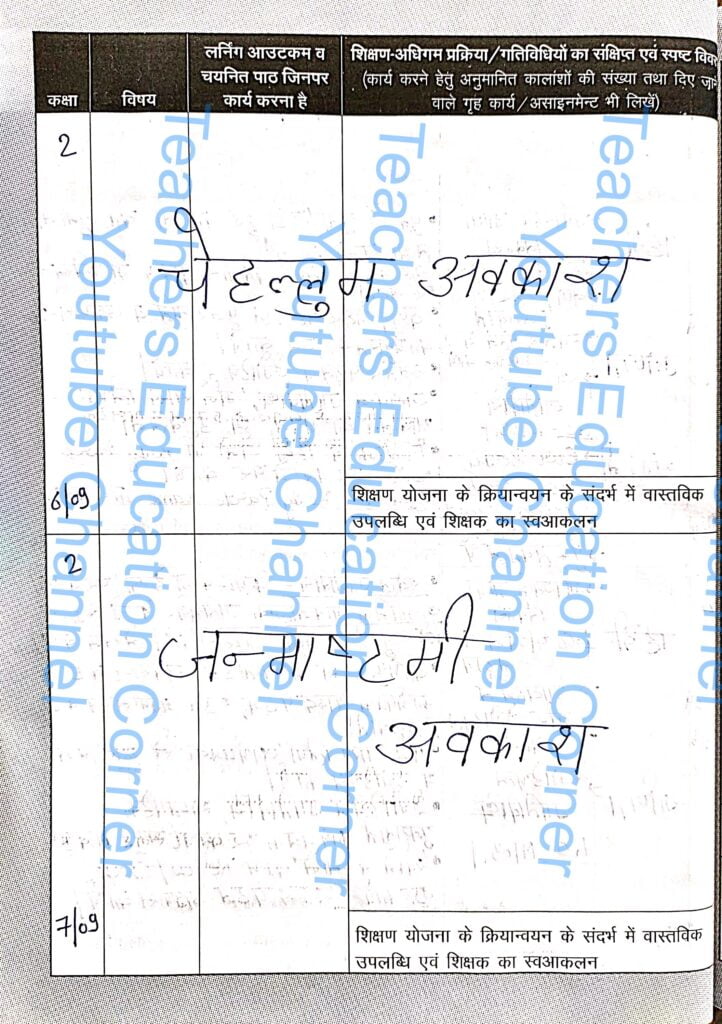 कक्षा
विषय
लर्निंग आउटकम व
चयनित पाठ जिनपर
कार्य करना है
शिक्षण-अधिगम प्रक्रिया/गतिविधियों का संक्षिप्त एवं स्पष्ट
(कार्य करने हेतु अनुमानित कालांशों की संख्या तथा दिए
वाले गृह कार्य/असाइनमेन्ट भी लिखें)
2
चेहल्लुम अवकाश
6/09
शिक्षण योजना के क्रियान्वयन के संदर्भ में वास्तविक
उपलब्धि एवं शिक्षक का स्वआकलन
2
जन्माष्टमी
अवकाश
7/09
शिक्षण योजना के क्रियान्वयन के संदर्भ में वास्तविक
उपलब्धि एवं शिक्षक का स्वआकलन
Teachers Education Corner
Youtube Channel
Teachers Education Corner
Youtube Channel
Teachers Education Corner
Youtube Channel